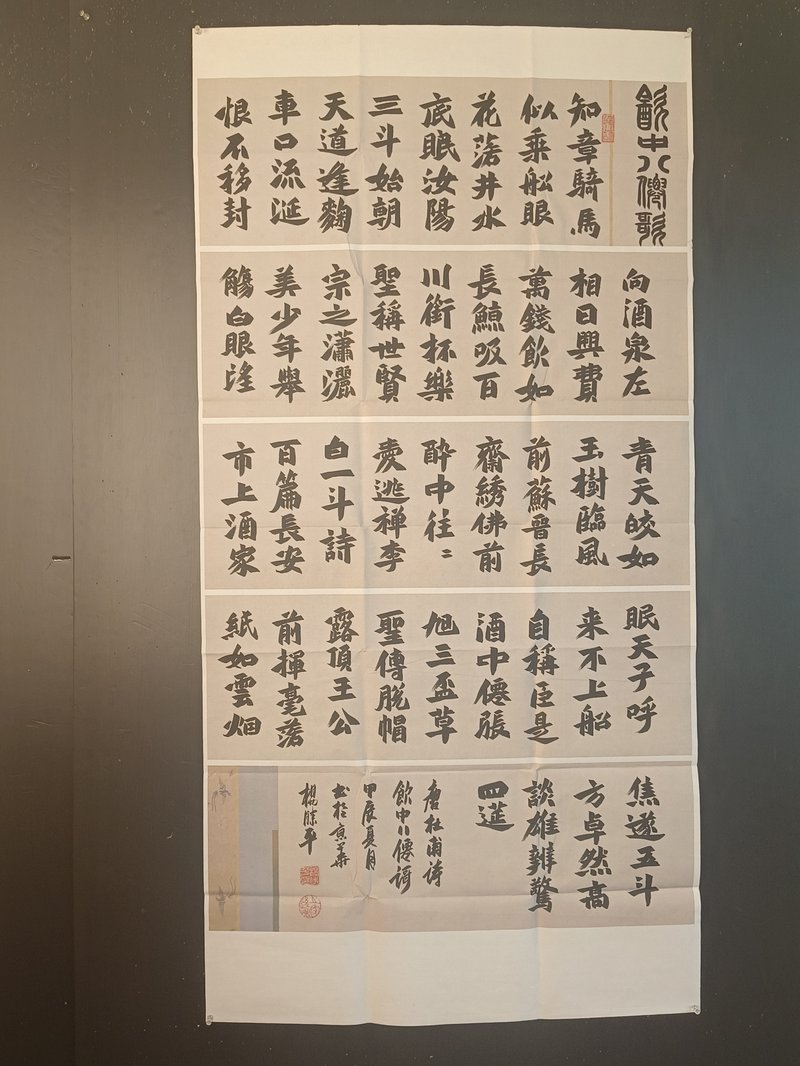 㱃中八僊歌
知章騎馬
似乘船眼
花落井水
底眠汝陽
三斗始朝
天道逢麴
車口流涎
恨不移封
向酒泉左
相日興費
萬錢飲如
長鯨吸百
川銜杯樂
聖稱世賢
宗之瀟灑
美少年舉
觴白眼望
青天皎如
玉樹臨風
前蘇晉長
齋綉佛前
醉中往〻
愛逃禅李
白一斗詩
百篇長安
市上酒家
眠天子呼
来不上船
自稱臣是
酒中僊張
旭三盃草
聖傳脫帽
露頂王公
前揮毫落
紙如雲烟
焦遂五斗
方卓然高
談雄辯驚
四筵
唐杜甫詩
飲中八僊謌
甲辰夏月
書於京華
楊勝平